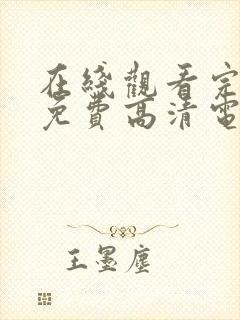 在綫觀看完
免費高清電
王墨塵